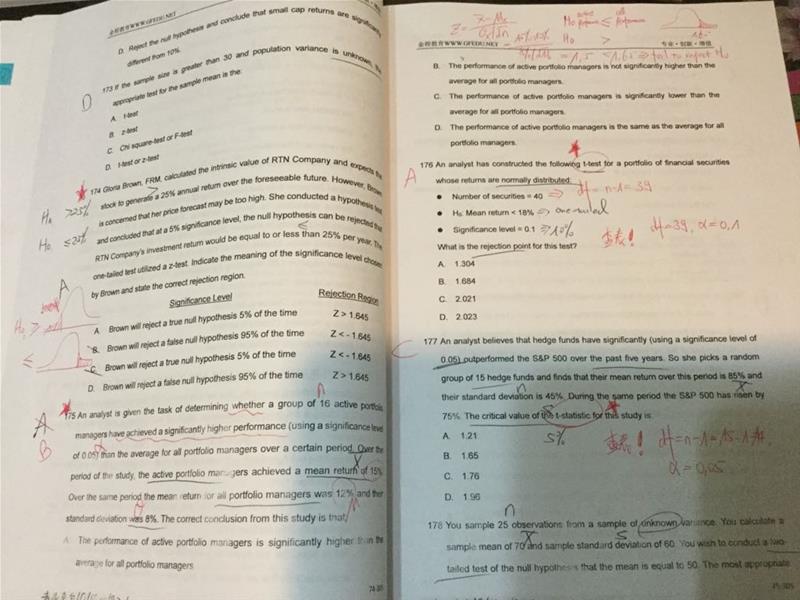 金程教育WWW.GFEDU.NET
D. Reject the null hypothesis and conclude that small cap returns are significantly
different from 10%.
173 If the sample size is greater than 30 and population variance is unknown, the
appropriate test for the sample mean is the:
A. t-test
B. z-test
C. Chi square-test or F-test
D. t-test or z-test
D
174 Gloria Brown, FRM, calculated the intrinsic value of RTN Company and expects the
stock to generate a 25% annual return over the foreseeable future. However, Brown
is concerned that her price forecast may be too high. She conducted a hypothesis test
and concluded that at a 5% significance level, the null hypothesis can be rejected that
RTN Company's investment return would be equal to or less than 25% per year. The
one-tailed test utilized a z-test. Indicate the meaning of the significance level chosen
by Brown and state the correct rejection region.
Ha >25%
H0 ≤25%
A
Significance Level Rejection Region
A. Brown will reject a true null hypothesis 5% of the time Z > 1.645
B. Brown will reject a false null hypothesis 95% of the time Z < - 1.645
C. Brown will reject a true null hypothesis 5% of the time Z < - 1.645
D. Brown will reject a false null hypothesis 95% of the time Z > 1.645
H0 ≥
≤
n
175 An analyst is given the task of determining whether a group of 16 active portfolio
managers have achieved a significantly higher performance (using a significance level
of 0.05) than the average for all portfolio managers over a certain period. Over the
period of the study, the active portfolio managers achieved a mean return of 15%.
Over the same period the mean return for all portfolio managers was 12% and their
standard deviation was 8%. The correct conclusion from this study is that:
A
B
A. The performance of active portfolio managers is significantly higher than the
average for all portfolio managers
74-305
金程教育WWW.GFEDU.NET
专业·创新·增值
H0 ≤
Ha >
= 1.5 < 1.65 ⇒ fail to reject H0
B. The performance of active portfolio managers is not significantly higher than the
average for all portfolio managers.
C. The performance of active portfolio managers is significantly lower than the
average for all portfolio managers.
D. The performance of active portfolio managers is the same as the average for all
portfolio managers.
176 An analyst has constructed the following t-test for a portfolio of financial securities
whose returns are normally distributed:
A
● Number of securities = 40 ⇒ df = n-1 = 39
● H0: Mean return < 18% ⇒ one-tailed
● Significance level = 0.1 ⇒ 10%
查表! df=39, α=0.1
What is the rejection point for this test?
A. 1.304
B. 1.684
C. 2.021
D. 2.023
177 An analyst believes that hedge funds have significantly (using a significance level of
0.05) outperformed the S&P 500 over the past five years. So she picks a random
group of 15 hedge funds and finds that their mean return over this period is 85% and
their standard deviation is 45%. During the same period the S&P 500 has risen by
75%. The critical value of the t-statistic for this study is:
C
A. 1.21
B. 1.65
C. 1.76
D. 1.96
5%
查表! df=n-1=15-1=14
α=0.05
n
178 You sample 25 observations from a sample of unknown variance. You calculate a
sample mean of 70 and sample standard deviation of 60. You wish to conduct a two-
tailed test of the null hypothesis that the mean is equal to 50. The most appropriate
75-305